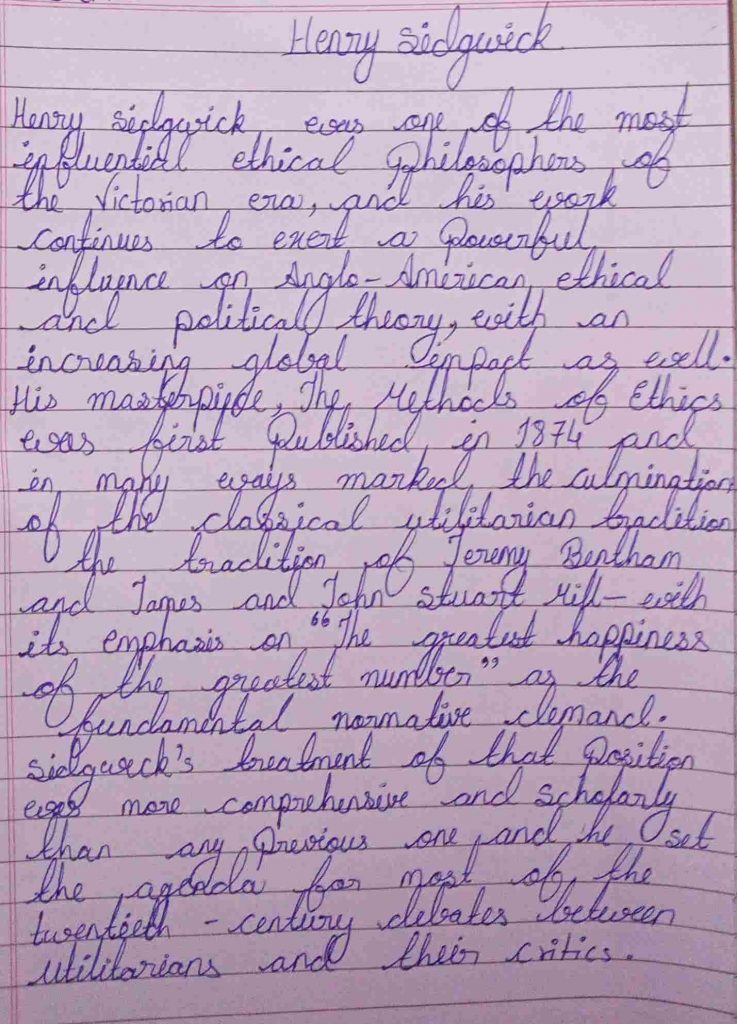 Henry Sidgwick
Henry Sidgwick was one of the most
influential ethical Philosophers of
the Victorian era, and his work
continues to exert a Powerful
influence on Anglo-American ethical
and political theory, with an
increasing global impact as well.
His masterpiece, The Methods of Ethics
was first Published in 1874 and
in many ways marked the culmination
of the classical utilitarian tradition
the tradition of Jeremy Bentham
and James and John Stuart Mill – with
its emphasis on "The greatest happiness
of the greatest number" as the
fundamental normative demand.
Sidgwick's treatment of that Position
was more comprehensive and scholarly
than any Previous one, and he set
the agenda for most of the
twentieth - century debates between
utilitarians and their critics.